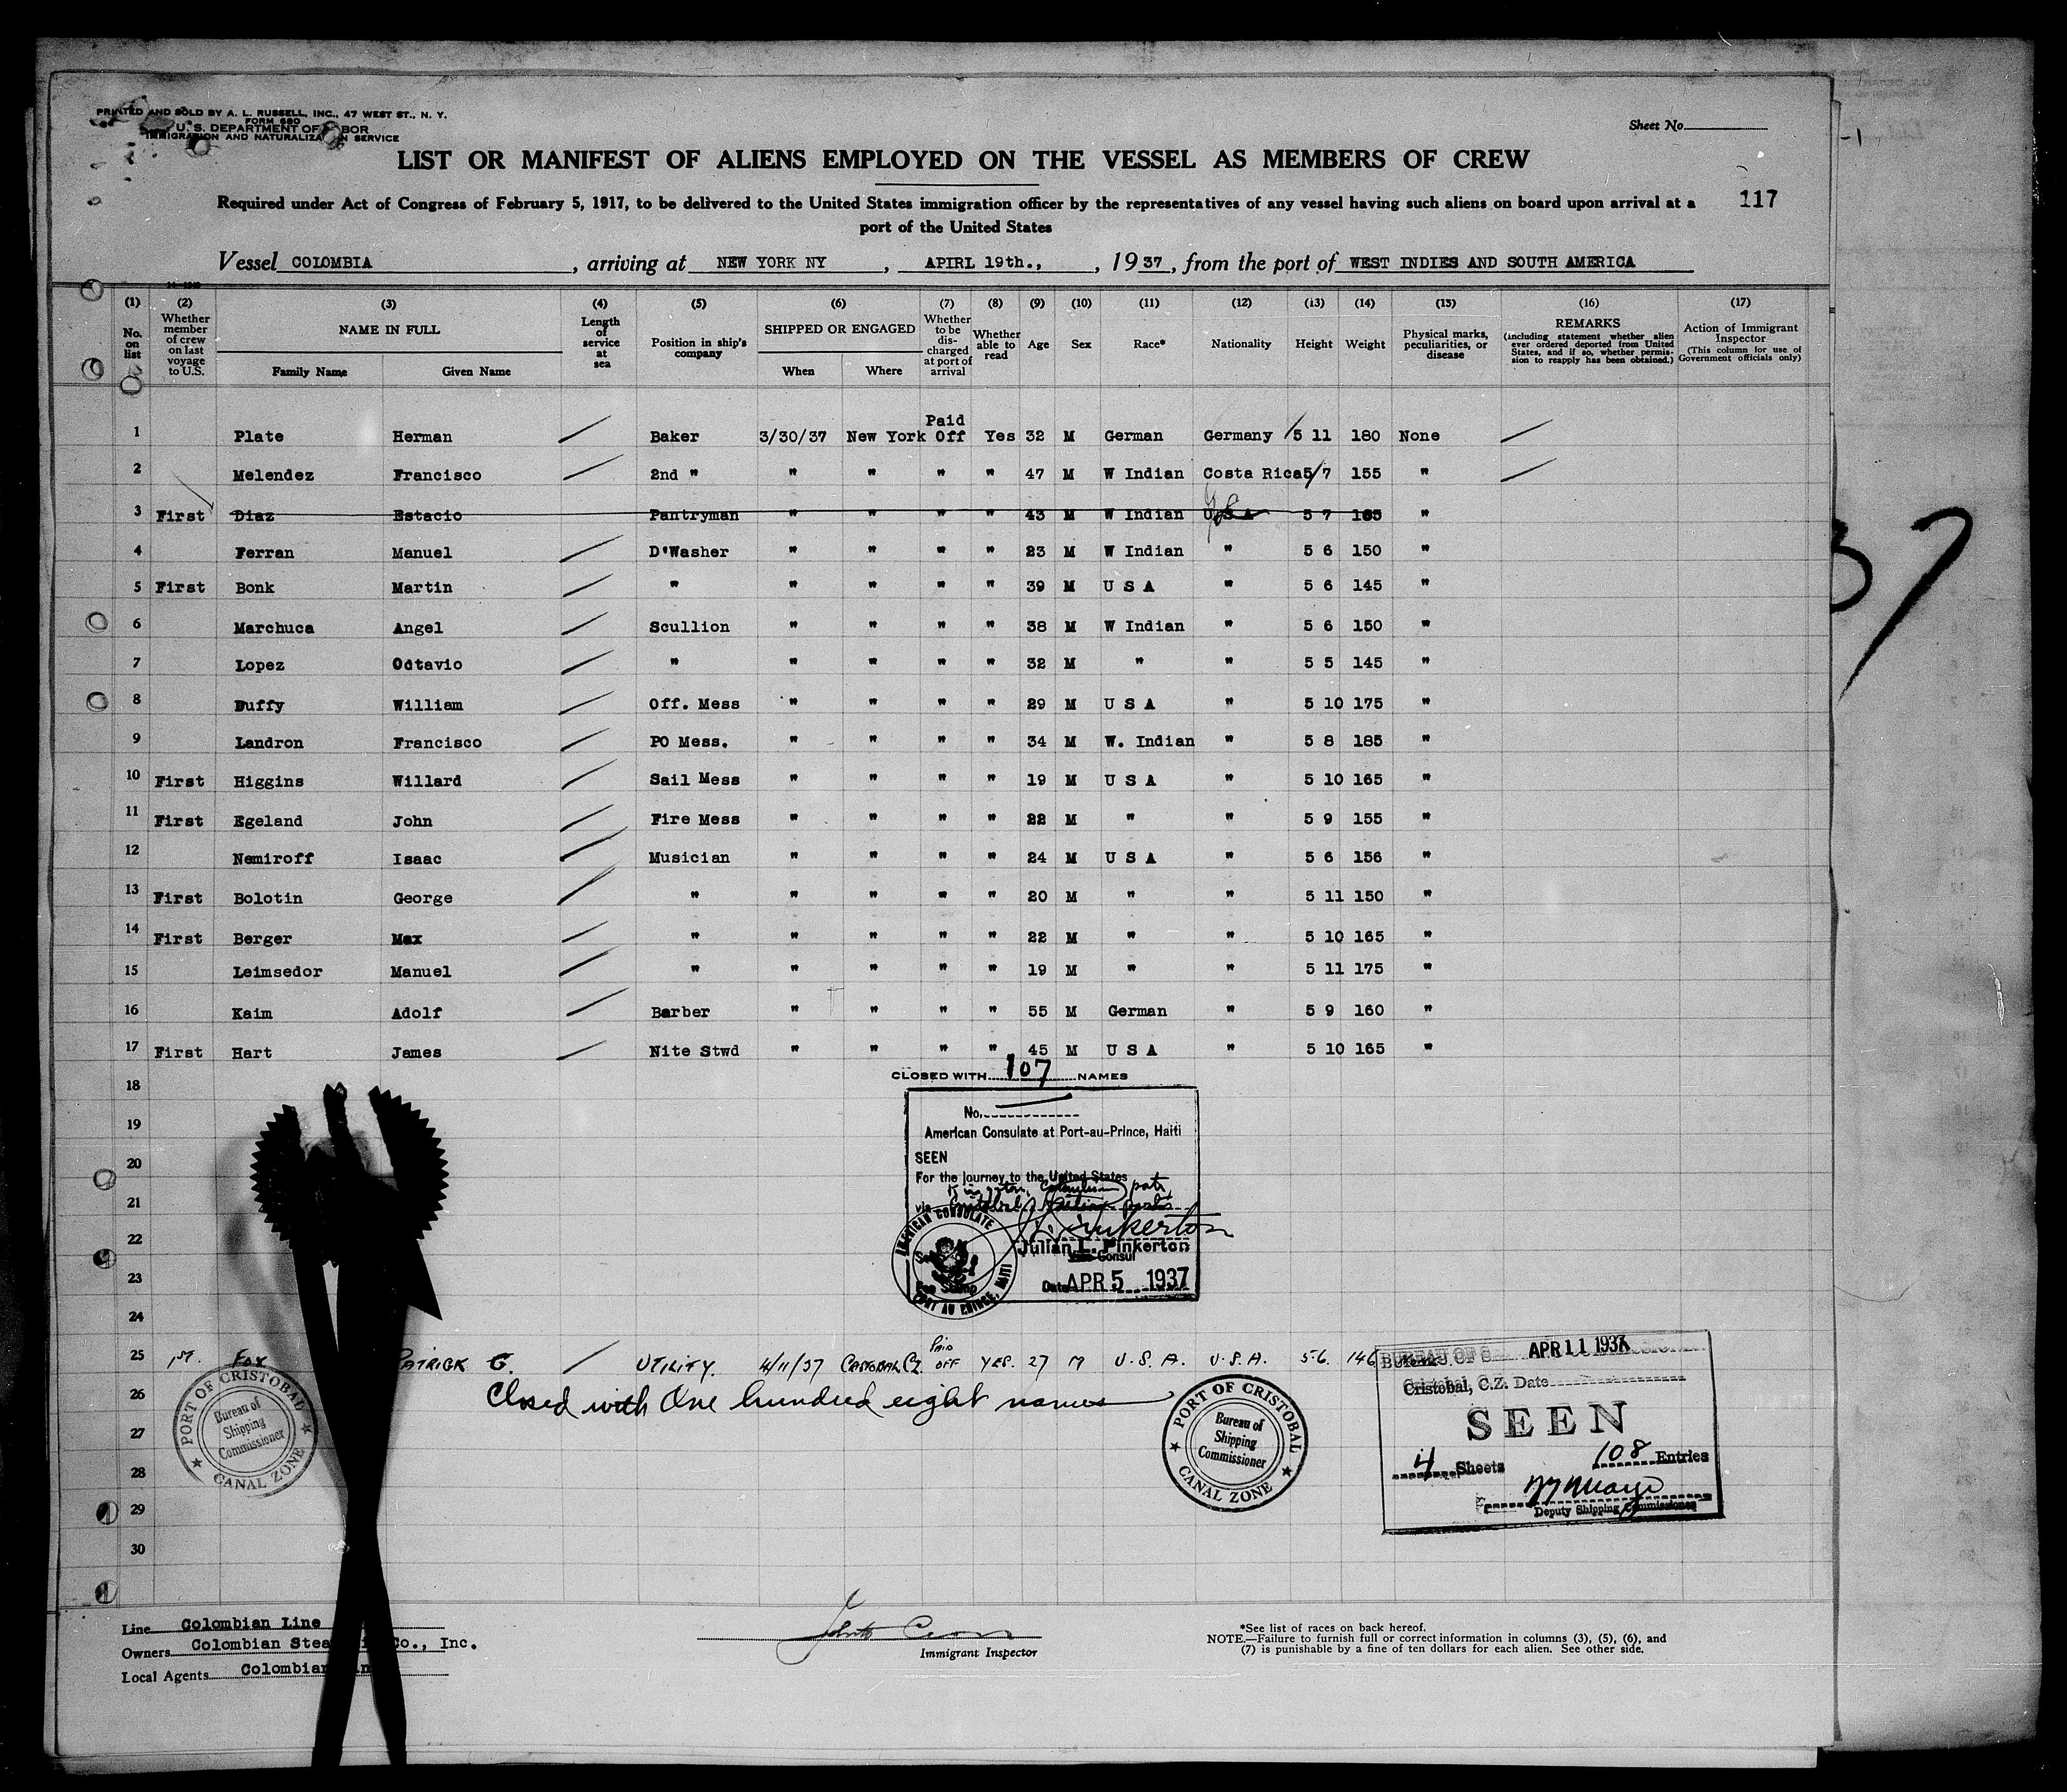 PRINTED AND SOLD BY A. L. RUSSELL, INC., 47 WEST ST., N. Y.
FORM 680
U. S. DEPARTMENT OF LABOR
IMMIGRATION AND NATURALIZATION SERVICE
Sheet No.
LIST OR MANIFEST OF ALIENS EMPLOYED ON THE VESSEL AS MEMBERS OF CREW
117
Required under Act of Congress of February 5, 1917, to be delivered to the United States immigration officer by the representatives of any vessel having such aliens on board upon arrival at a
port of the United States
Vessel COLOMBIA, arriving at NEW YORK NY, APIRL 19th., , 1937, from the port of WEST INDIES AND SOUTH AMERICA
(1) No. on list
(2) Whether member of crew on last voyage to U.S.
(3) NAME IN FULL Family Name Given Name
(4) Length of service at sea
(5) Position in ship's company
(6) SHIPPED OR ENGAGED When Where
(7) Whether to be discharged at port of arrival
(8) Whether able to read
(9) Age
(10) Sex
(11) Race*
(12) Nationality
(13) Height
(14) Weight
(15) Physical marks, peculiarities, or disease
(16) REMARKS (including statement whether alien ever ordered deported from United States, and if so, whether permission to reapply has been obtained.)
(17) Action of Immigrant Inspector (This column for use of Government officials only)
1 Plate Herman Baker 3/30/37 New York Paid Off Yes 32 M German Germany 5 11 180 None
2 Melendez Francisco 2nd " " " " " 47 M W Indian Costa Rica 5 7 155 "
3 First Diaz Estacio Pantryman " " " " 43 M W Indian U S A 5 7 165 "
4 Ferran Manuel D'Washer " " " " 23 M W Indian " 5 6 150 "
5 First Bonk Martin " " " " " 39 M U S A " 5 6 145 "
6 Marchuca Angel Scullion " " " " 38 M W Indian " 5 6 150 "
7 Lopez Octavio " " " " " 32 M " " 5 5 145 "
8 Duffy William Off. Mess " " " " 29 M U S A " 5 10 175 "
9 Landron Francisco PO Mess. " " " " 34 M W. Indian " 5 8 185 "
10 First Higgins Willard Sail Mess " " " " 19 M U S A " 5 10 165 "
11 First Egeland John Fire Mess " " " " 22 M " " 5 9 155 "
12 Nemiroff Isaac Musician " " " " 24 M U S A " 5 6 156 "
13 First Bolotin George " " " " " 20 M " " 5 11 150 "
14 First Berger Max " " " " " 22 M " " 5 10 165 "
15 Leimsedor Manuel " " " " " 19 M " " 5 11 175 "
16 Kaim Adolf Barber " " " " 55 M German " 5 9 160 "
17 First Hart James Nite Stwd " " " " 45 M U S A " 5 10 165 "
CLOSED WITH 107 NAMES
18
19
20
21
22
23
24
No.
American Consulate at Port-au-Prince, Haiti
SEEN
For the journey to the United States
via
Julian L. Pinkerton
Consul
Date APR 5 1937
AMERICAN CONSULATE
PORT AU PRINCE, HAITI
25 1ST. FOX PATRICK G. UTILITY. 4/11/37 CRISTOBAL CZ PAID OFF YES. 27 M U.S.A. U.S.A. 5-6. 146
26 Closed with One hundred eight names
27
28
29
30
PORT OF CRISTOBAL
Bureau of Shipping Commissioner
CANAL ZONE
PORT OF CRISTOBAL
Bureau of Shipping Commissioner
CANAL ZONE
APR 11 1937
Cristobal, C.Z. Date
SEEN
4 Sheets 108 Entries
Deputy Shipping Commissioner
Line Colombian Line
Owners Colombian Steamship Co., Inc.
Local Agents Colombian Line
Immigrant Inspector
*See list of races on back hereof.
NOTE.—Failure to furnish full or correct information in columns (3), (5), (6), and
(7) is punishable by a fine of ten dollars for each alien. See other side.
37